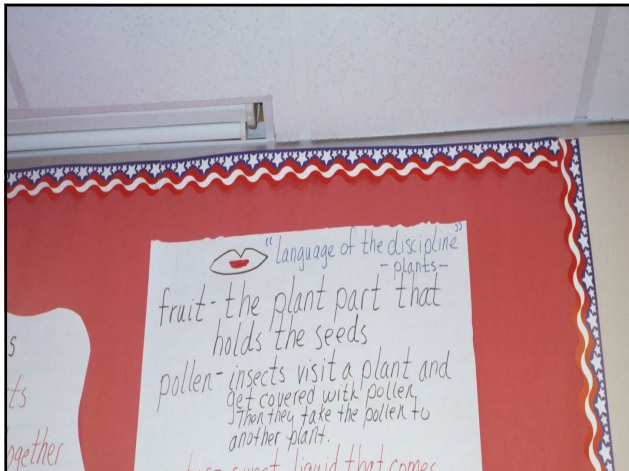 "language of the discipline"
- plants -
fruit - the plant part that
holds the seeds
pollen - insects visit a plant and
get covered with pollen,
Then they take the pollen to
another plant.
sweet liquid that comes
s
ts
ogether